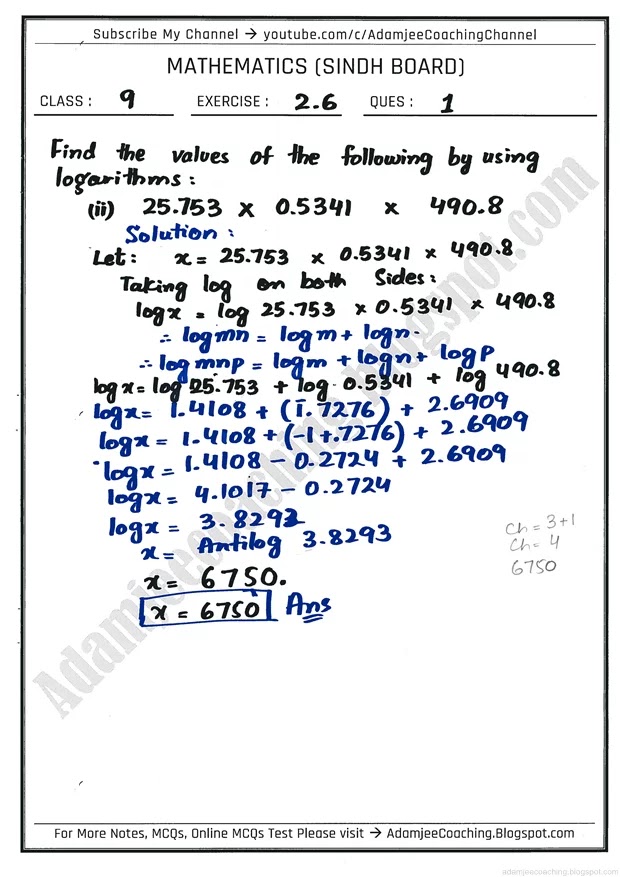 Subscribe My Channel → youtube.com/c/AdamjeeCoachingChannel
MATHEMATICS (SINDH BOARD)
CLASS : 9 EXERCISE : 2.6 QUES : 1
Find the values of the following by using
logarithms:
(ii) 25.753 x 0.5341 x 490.8
Solution:
Let: x = 25.753 x 0.5341 x 490.8
Taking log on both Sides:
log x = log 25.753 x 0.5341 x 490.8
∴ log mn = log m + log n.
∴ log mnp = log m + log n + log p
log x = log 25.753 + log 0.5341 + log 490.8
log x = 1.4108 + (1̄.7276) + 2.6909
log x = 1.4108 + (-1 + .7276) + 2.6909
log x = 1.4108 - 0.2724 + 2.6909
log x = 4.1017 - 0.2724
log x = 3.8293
x = Antilog 3.8293
Ch = 3+1
Ch = 4
6750
x = 6750.
x = 6750 Ans
Adamjeecoaching.blogspot.com
For More Notes, MCQs, Online MCQs Test Please visit → AdamjeeCoaching.Blogspot.com
adamjeecoaching.blogspot.com